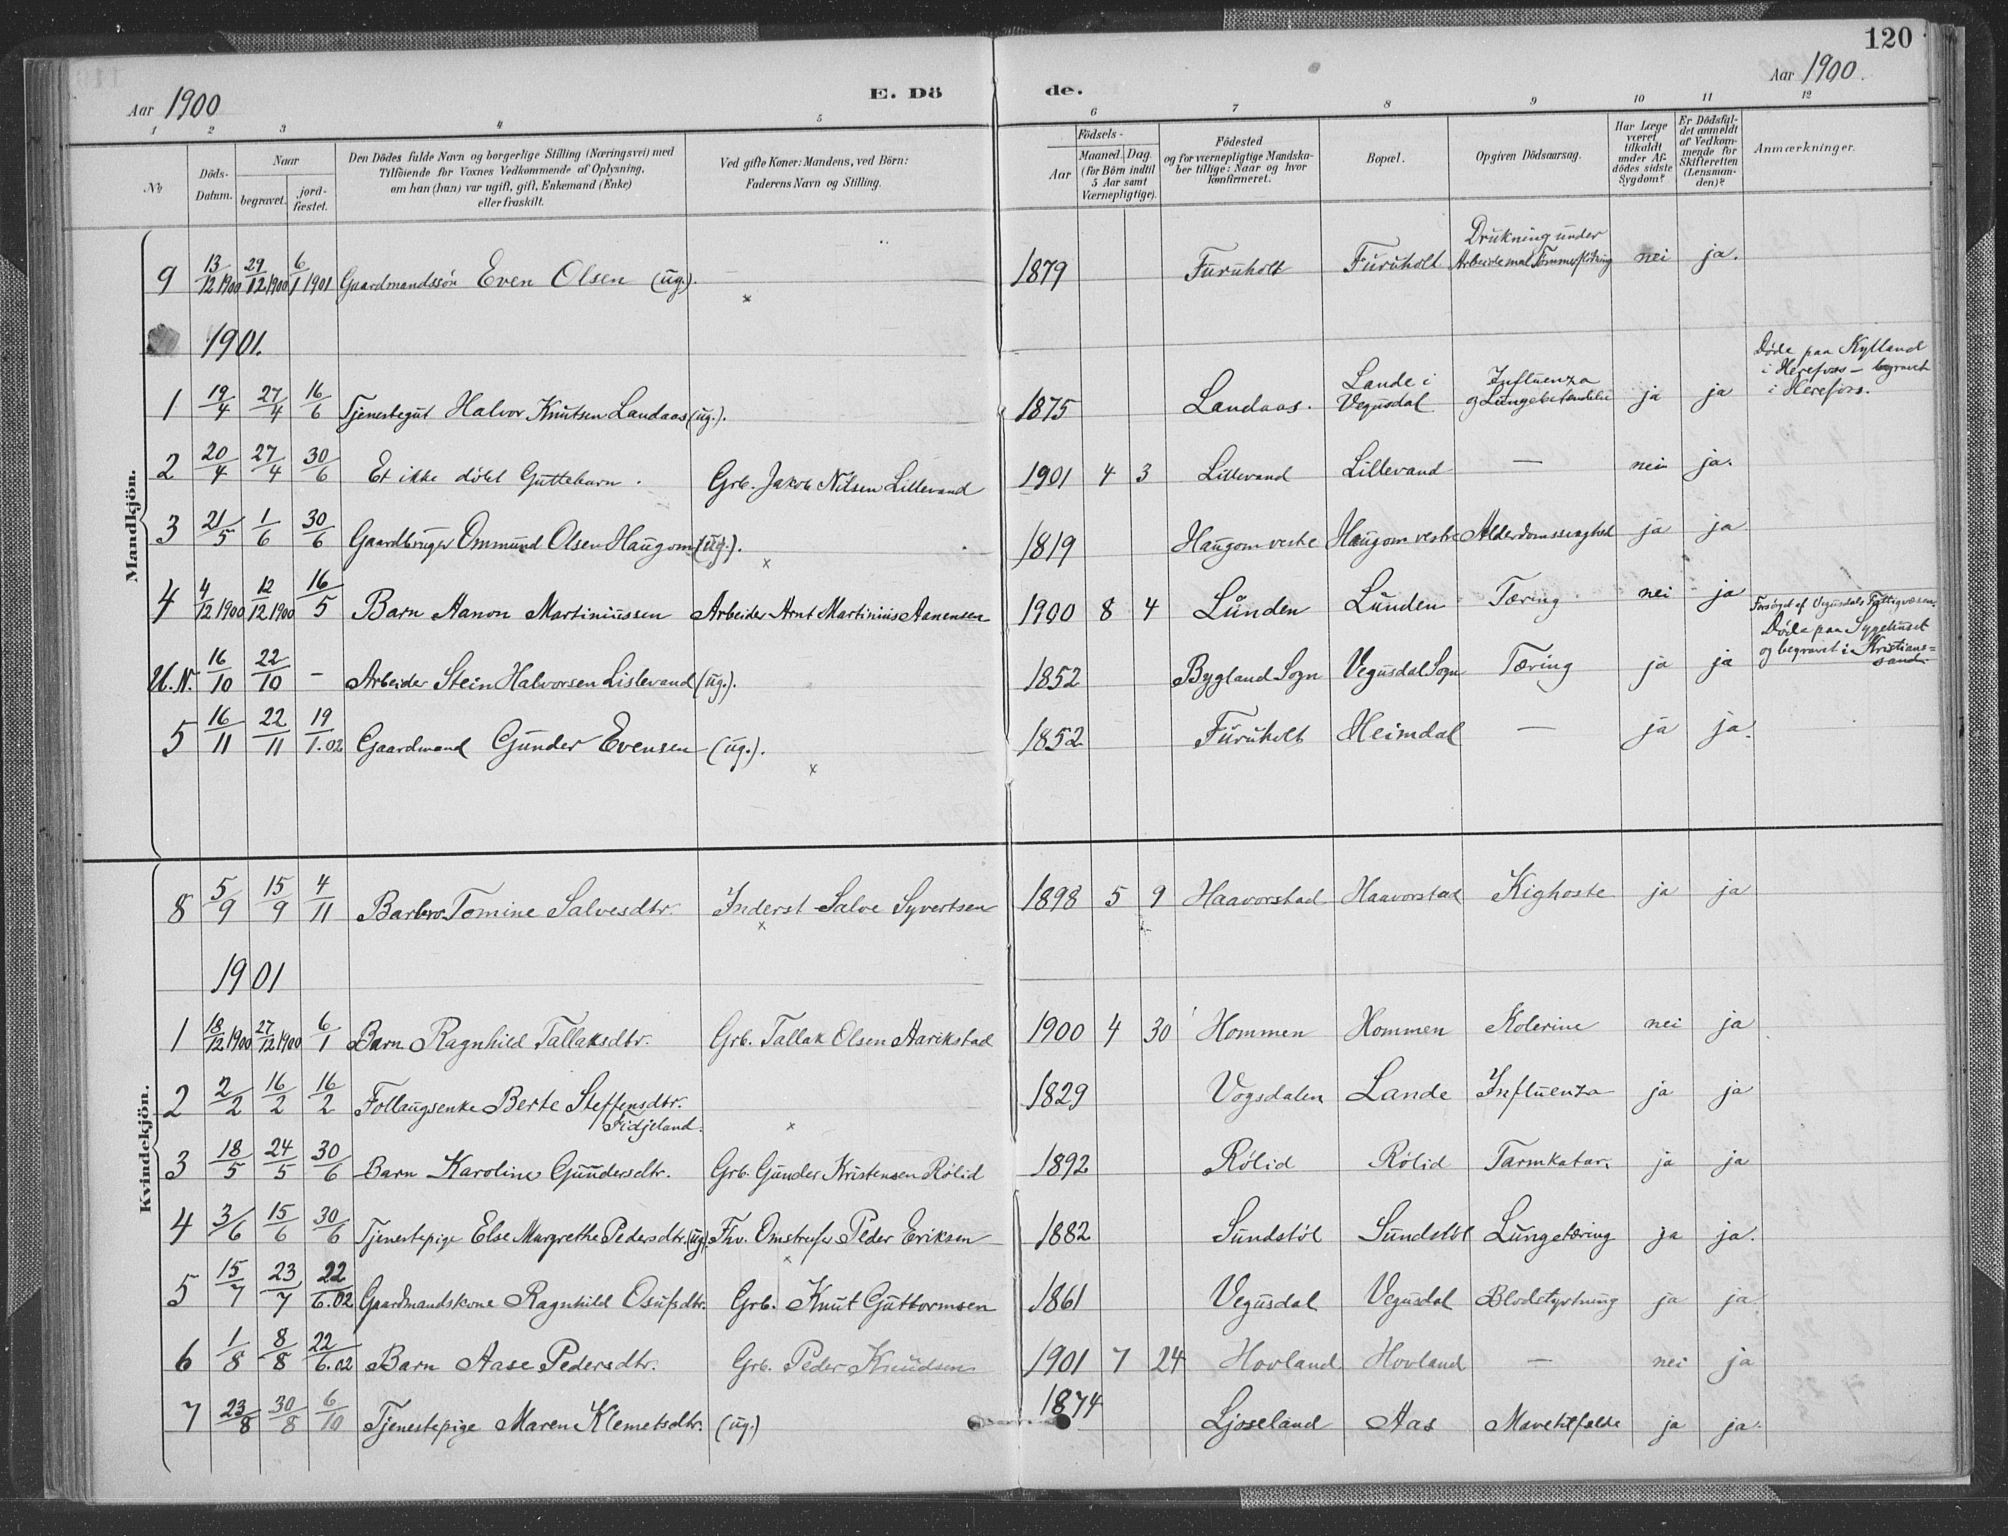 120
Aar 1900 E. Dö de. Aar 1900.
1 2 3 4 5 6 7 8 9 10 11 12
No Döds-Datum. Naar begravet. jord-fæstet. Den Dödes fulde Navn og borgerlige Stilling (Næringsvei) med Tilföiende for Voxnes Vedkommende af Oplysning, om han (hun) var ugift, gift, Enkemand (Enke) eller fraskilt. Ved gifte Koner: Mandens, ved Börn: Faderens Navn og Stilling. Födsels- Aar Maaned. Dag. (for Börn indtil 5 Aar samt Værnepligtige). Födested og for værnepligtige Mandskaber tillige: Naar og hvor konfirmeret. Bopæl. Opgiven Dödsaarsag. Har Læge været tilkaldt under Afdödes sidste Sygdom? Er Dödsfaldet anmeldt af Vedkommende for Skifteretten (Lensmanden)? Anmærkninger.
Mandkjön.
9 13/12 1900 29/12 1900 6/1 1901 Gaardmandssøn Even Olsen (ug.). 1879 Furuholt Furuholt Drukning under Arbeide med Tømmerflødning nei ja.
1901.
1 19/4 27/4 16/6 Tjenestegut Halvor Knutsen Landaas (ug.). 1875 Landaas. Lande i Vegusdal Influenza og Lungebetændelse ja ja Døde paa Kylland i Herefoss – begravet i Herefoss.
2 20/4 27/4 30/6 Et ikke døbt Guttebarn. Grb. Jakob Nilsen Lillevand 1901 4 3 Lillevand Lillevand — nei ja.
3 21/5 1/6 30/6 Gaardbruger Ommund Olsen Haugom (ug.). 1819 Haugom vestre Haugom vestre Alderdomssvaghed ja ja
4 4/12 1900 12/12 1900 16/5 Barn Aanon Martiniussen Arbeider Arnt Martinius Aanensen 1900 8 4 Lunden Lunden Tæring nei ja
U.N. 16/10 22/10 – Arbeider Stein Halvorsen Lislevand (ug.). 1852 Bygland Sogn Vegusdal Sogn Tæring ja ja Forsørget af Vegusdals Fattigvæsen. Døde paa Sygehuset og begravet i Kristianssand.
5 16/11 22/11 19/1.02 Gaardmand Gunder Evensen (ug.). 1852 Furuholt Heimdal — ja ja.
Kvindekjön.
8 5/9 15/9 4/11 Barbro Tomine Salvesdtr. Inderst Salve Syvertsen 1898 5 9 Haavorstad Haavorstad Kighoste ja ja
1901
1 18/12 1900 27/12 1900 6/1 Barn Ragnhild Tallaksdtr. Grb. Tallak Olsen Aarikstad 1900 4 30 Hommen Hommen Kolerine nei ja
2 2/2 16/2 16/2 Føllaugsenke Berte Steffensdtr. Fidjeland. 1829 Vogsdalen Lande Influenza ja ja
3 18/5 24/5 30/6 Barn Karoline Gundersdtr. Grb. Gunder Kristensen Rølid 1892 Rølid Rølid Tarmkatar. ja ja
4 3/6 15/6 30/6 Tjenestepige Else Margrethe Pedersdtr. (ug). Fhv. Omstreifer Peder Eriksen 1882 Sundstøl Sundstøl Lungetæring ja ja.
5 15/7 23/7 22/6.02 Gaardmandskone Ragnhild Osufsdtr. Grb. Knut Guttormsen 1861 Vegusdal Vegusdal Blodstyrtning ja ja
6 1/8 8/8 22/6.02 Barn Aase Pedersdtr. Grb. Peder Knudsen 1901 7 24 Hovland Hovland — nei ja
7 23/8 30/8 6/10 Tjenestepige Maren Klemetsdtr. (ug.) 1874 Ljoseland Aas Mavetilfælde ja ja.